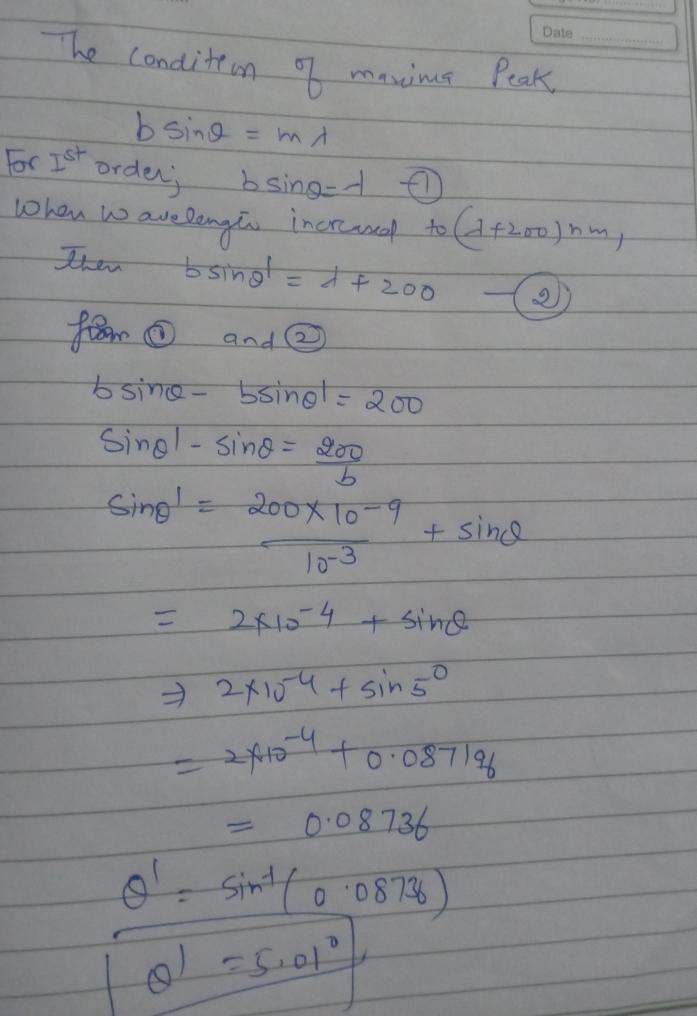 Date
The condition of maxima Peak
b sinθ = mλ
For Ist order; b sinθ = λ ①
When wavelength increased to (λ+200) nm,
Then b sinθ' = λ + 200 — ②
from ① and ②
b sinθ - b sinθ' = 200
Sinθ' - sinθ = 200/b
Sinθ' = 200×10-9/10-3 + sinθ
= 2×10-4 + sinθ
⇒ 2×10-4 + sin 5°
= 2×10-4 + 0.08716
= 0.08736
θ' = sin-1(0.08736)
θ' = 5.01°